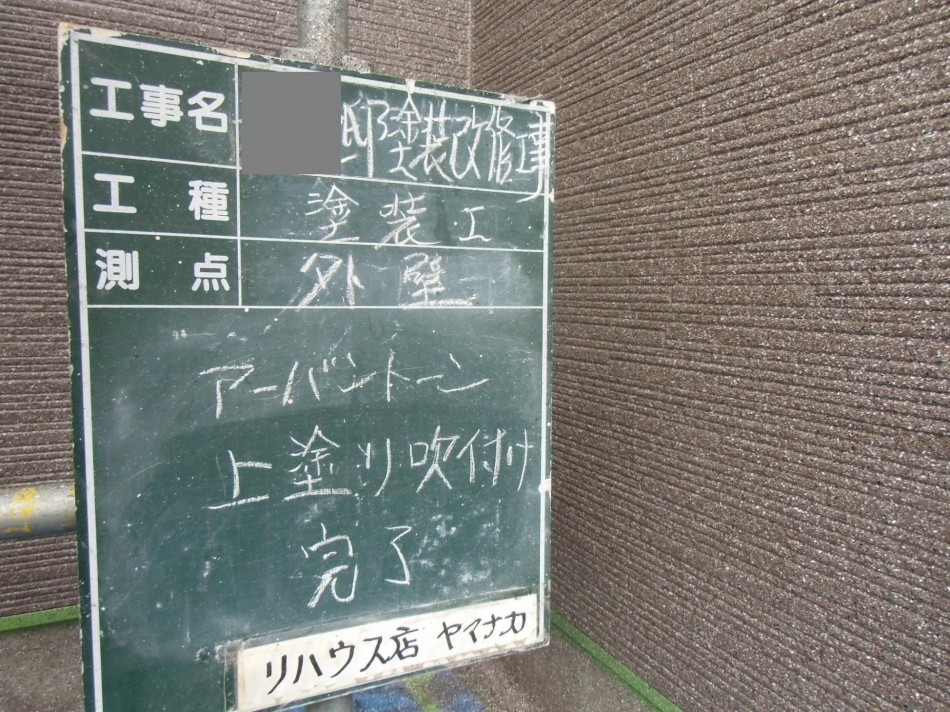 工事名 邸塗装改修工事
工種 塗装工
測点 外壁
アーバントーン
上塗り吹付け
完了
リハウス店 ヤマナカ